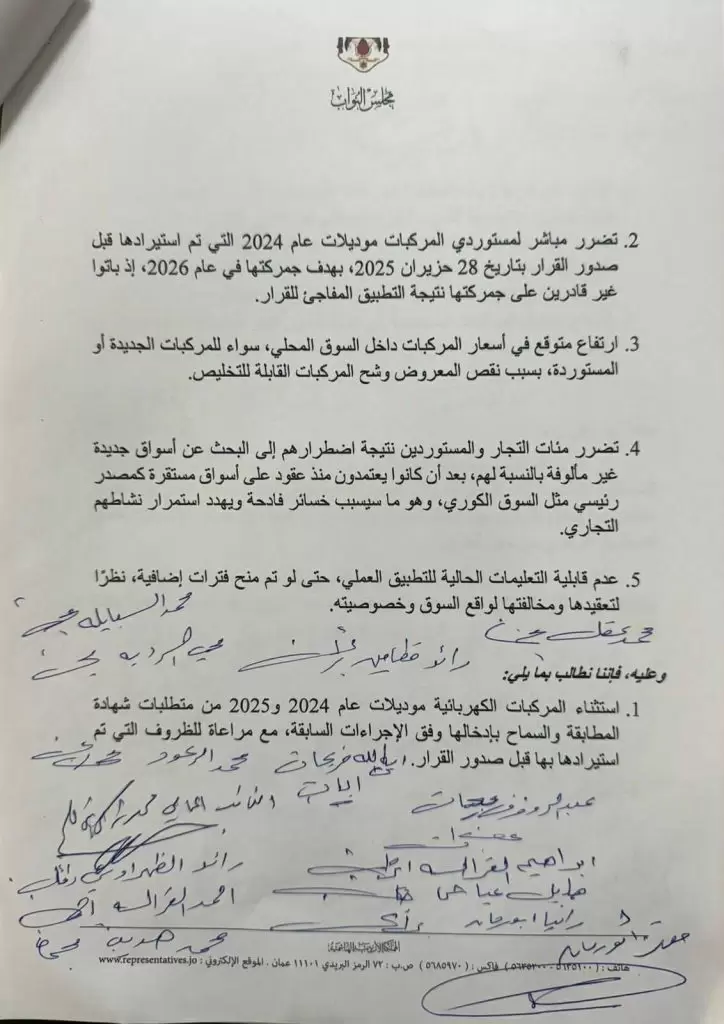 مجلس النواب
2. تضرر مباشر لمستوردي المركبات موديلات عام 2024 التي تم استيرادها قبل
صدور القرار بتاريخ 28 حزيران 2025، بهدف جمركتها في عام 2026، إذ باتوا
غير قادرين على جمركتها نتيجة التطبيق المفاجئ للقرار.
3. ارتفاع متوقع في أسعار المركبات داخل السوق المحلي، سواء للمركبات الجديدة أو
المستوردة، بسبب نقص المعروض وشح المركبات القابلة للتخليص.
4. تضرر مئات التجار والمستوردين نتيجة اضطرارهم إلى البحث عن أسواق جديدة
غير مألوفة بالنسبة لهم، بعد أن كانوا يعتمدون منذ عقود على أسواق مستقرة كمصدر
رئيسي مثل السوق الكوري، وهو ما سيسبب خسائر فادحة ويهدد استمرار نشاطهم
التجاري.
5. عدم قابلية التعليمات الحالية للتطبيق العملي، حتى لو تم منح فترات إضافية، نظرًا
لتعقيدها ومخالفتها لواقع السوق وخصوصيته.
محمد السبايله
محمد عقل
رائد قطامين
وعليه، فإننا نطالب بما يلي:
1. استثناء المركبات الكهربائية موديلات عام 2024 و2025 من متطلبات شهادة
المطابقة والسماح بإدخالها وفق الإجراءات السابقة، مع مراعاة للظروف التي تم
استيرادها بها قبل صدور القرار.
محمد الرعود
ابراهيم القرالسه
رائد الظهراوي
هايل عياش
احمد القرالسه
رانيا ابورمان
هاتف : (٥٦٣٥١٠٠ - ٥٦٣٥٢٠٠) فاكس : (٥٦٨٥٩٧٠) ص.ب : ٧٢ الرمز البريدي ١١١٠١ عمان . الموقع الإلكتروني : www.representatives.jo